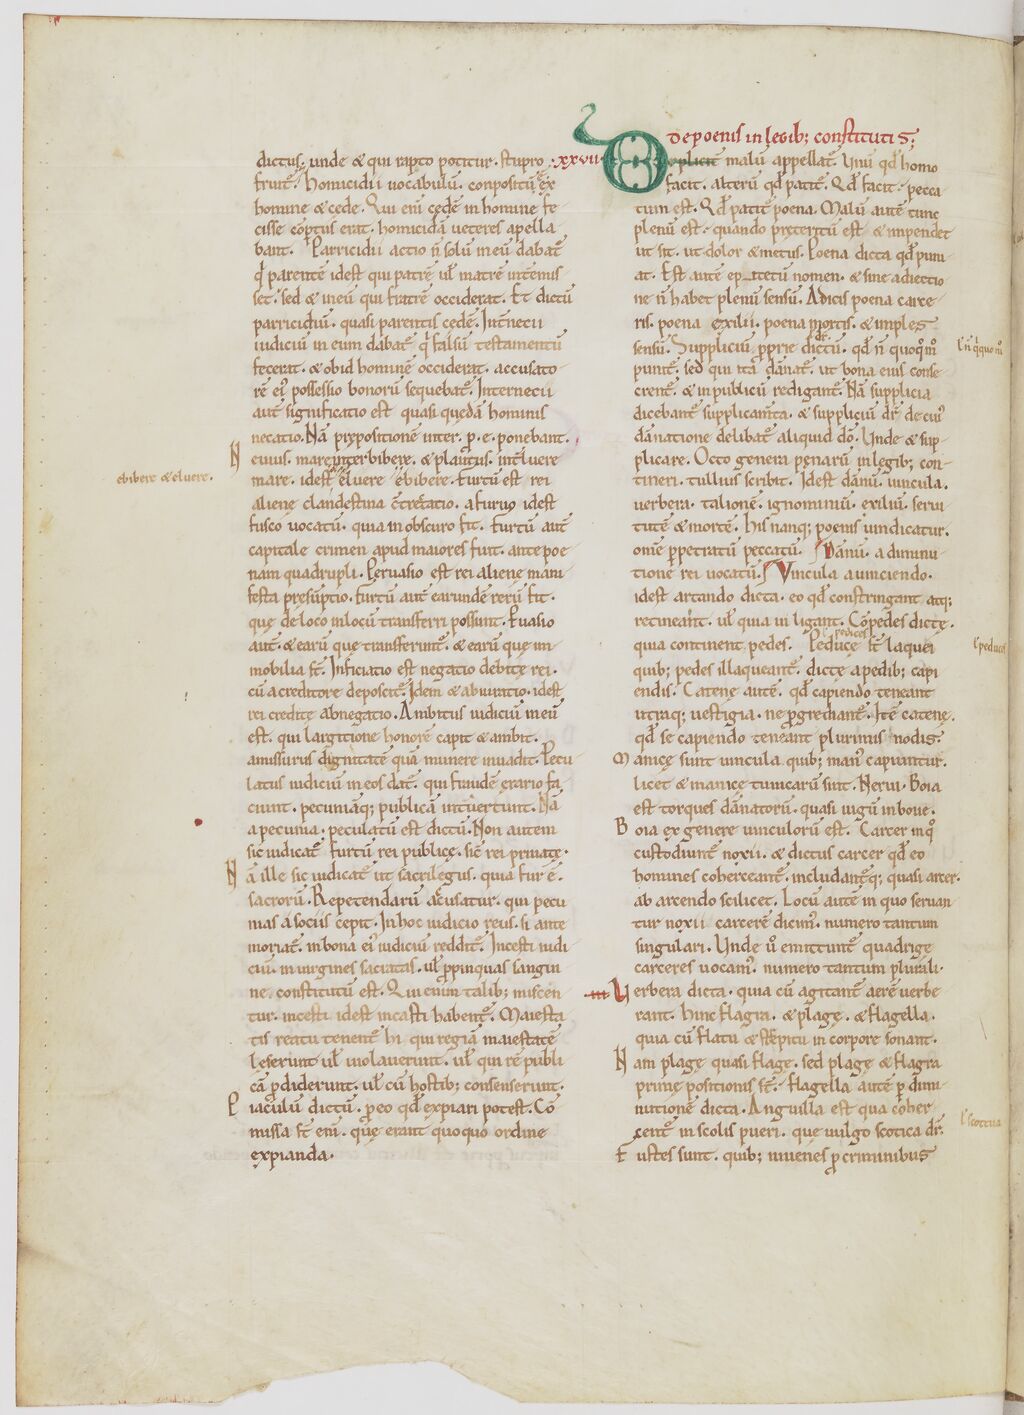 dictus. unde & qui rapto potitur. stupro
fruit᷑. Homicidii uocabulū. conpositū ex
homine & cede. Qui eni᷑ cedē in homine fe
cisse cōptus erat. homicidā ueteres apella
bant. Parricidii actio n̄ solū in eū dabat᷑
q̇ parentē idest qui patrē ul̄ matrē int᷑emis
set. sed & in eū qui fratrē occiderat. Et dictū
parricidiū. quasi parentis cedē. Int᷑necii
iudiciū in eum dabat᷑ q̇ falsū testamentū
fecerat. & ob id hominē occiderat. accusato
rē ei᷒ possessio bonorū sequebat᷑. Internecii
aut̄ significatio est quasi quędā hominis
necatio. Nā p̄ipositionē inter. p̱. e. ponebant.
Neuius. mare interbibere. & plautus. int᷑luere
mare. idest eluere ebibere. Furtū est rei
alienę clandestina c̄trectatio. a furuo idest
fusco uocatū. quia in obscuro fit. Furtū aut̄
capitale crimen apud maiores fuit. ante poe
nam quadrupli. Peruasio est rei alienę mani
festa presūptio. furtū aut̄ earundē rerū fit.
quę de loco in locū transferri possunt. Euasio
aut̄. & earū quę transferunt᷑. & earū quę im
mobilia st̄. Inficiatio est negatio debitę rei.
cū a creditore deposcit᷑. Idem & abiuratio. idest
rei creditę abnegatio. Ambitus iudiciū in eū
est. qui largitione honorē capit & ambit.
amissurus dignitatē quā munere inuadit. Pecu
latus iudiciū in eos dat᷑. qui fraudē erario fa
ciunt. pecuniāq; publicā int᷑uertunt. Nā
a pecunia. peculatū est dictū. Non autem
sic iudicat᷑ furtū rei publicę. sic̄ rei priuatę.
Nā ille sic iudicat᷑ ut sacrilegus. quia fur ē.
sacrorū. Repetendarū accusatur. qui pecu
nias a sociis cepit. In hoc iudicio reus. si ante
moriat᷑. in bona ei᷒ iudiciū reddit᷑. Incesti iudi
ciū. in uirgines sacratas. ul̄ p̱pinquas sangui
ne. constitutū est. Qui enim talib; miscen
tur. incesti idest incasti habent᷑. Maiesta
tis reatu tenent᷑ hi qui regiā maiestatē
leserunt ul̄ uiolauerunt. ul̄ qui rē publi
cā p̱diderunt. ul̄ cū hostib; consenserunt.
Piaculū dictū. p̱ eo qd̄ expiari potest. Cō
missa st̄ eni᷑. quę erant quoquo ordine
expianda.
ebibere & eluere.
De poenis in legib; constitutis;
xxvii
malū appellat᷑. Unū qd̄ homo
facit. alterū qd̄ patit᷑. Qd̄ facit. pecca
tum est. Qd̄ patit᷑ poena. Malū autē tunc
plenū est. quando pręteritū est & impendet
ut sit. ut dolor & metus. Poena dicta qd̄ puni
at. Est autē epitetū nomen. & sine adiectio
ne n̄ habet plenū sensū. Adicis poena carce
ris. poena exilii. poena mortis. & imples
sensū. Suppliciū p̱prie dictū. qd̄ n̄ quoq᷒ m̊
punit᷑. sed qui ita dānat᷑. ut bona eius conse
crent᷑. & in publicū redigant᷑. Nā supplicia
dicebant᷑ supplicam̄ta. & suppliciū dr̄ de cui᷒
dānatione delibat᷑ aliquid dō. Unde & sup
plicare. Octo genera pęnarū in legib; con
tineri. tullius scribit. Idest dānū. uincula.
uerbera. talionē. ignominiū. exiliū. serui
tutē & mortē. His nanq; poenis uindicatur.
om̄e p̱petratū peccatū. Dānū. a diminu
tione rei uocatū. Vincula a uinciendo.
idest artando dicta. eo qd̄ constringant atq;
retineant. ul̄ quia ui ligant. Cōpedes dictę.
quia continent pedes. Peducę st̄ laquei
quib; pedes illaqueant᷑. dictę a pedib; capi
endis. Catenę autē. qd̄ capiendo teneant
utraq; uestigia. ne p̱grediant᷑. Itē catenę.
qd̄ se capiendo teneant plurimis nodis.
Manicę sunt uincula quib; man᷒ capiuntur.
licet & manicę tunicarū sint. Nerui. Boia
est torques dānatorū. quasi iugū in boue.
Boia ex genere uinculorū est. Carcer in q̊
custodiunt᷑ noxii. & dictus carcer qd̄ eo
homines coherceant᷑. includant᷑q; quasi arcer.
ab arcendo scilicet. Locū autē in quo seruan
tur noxii carcerē dicim᷒. numero tantum
singulari. Unde u̇ emittunt᷑ quadrigę
carceres uocam᷒. numero tantum plurali.
Verbera dicta. quia cū agitant᷑ aerē uerbe
rant. hinc flagra. & plagę. & flagella.
quia cū flatu & strepitu in corpore sonant.
Nam plagę quasi flagę. sed plagę & flagra
primę positionis st̄. flagella autē p̱ dimi
nutionē dicta. Anguilla est qua coher
cent᷑ in scolis pueri. quę uulgo scotica dr̄.
Fustes sunt. quib; iuuenes p̱ criminibus
pedices